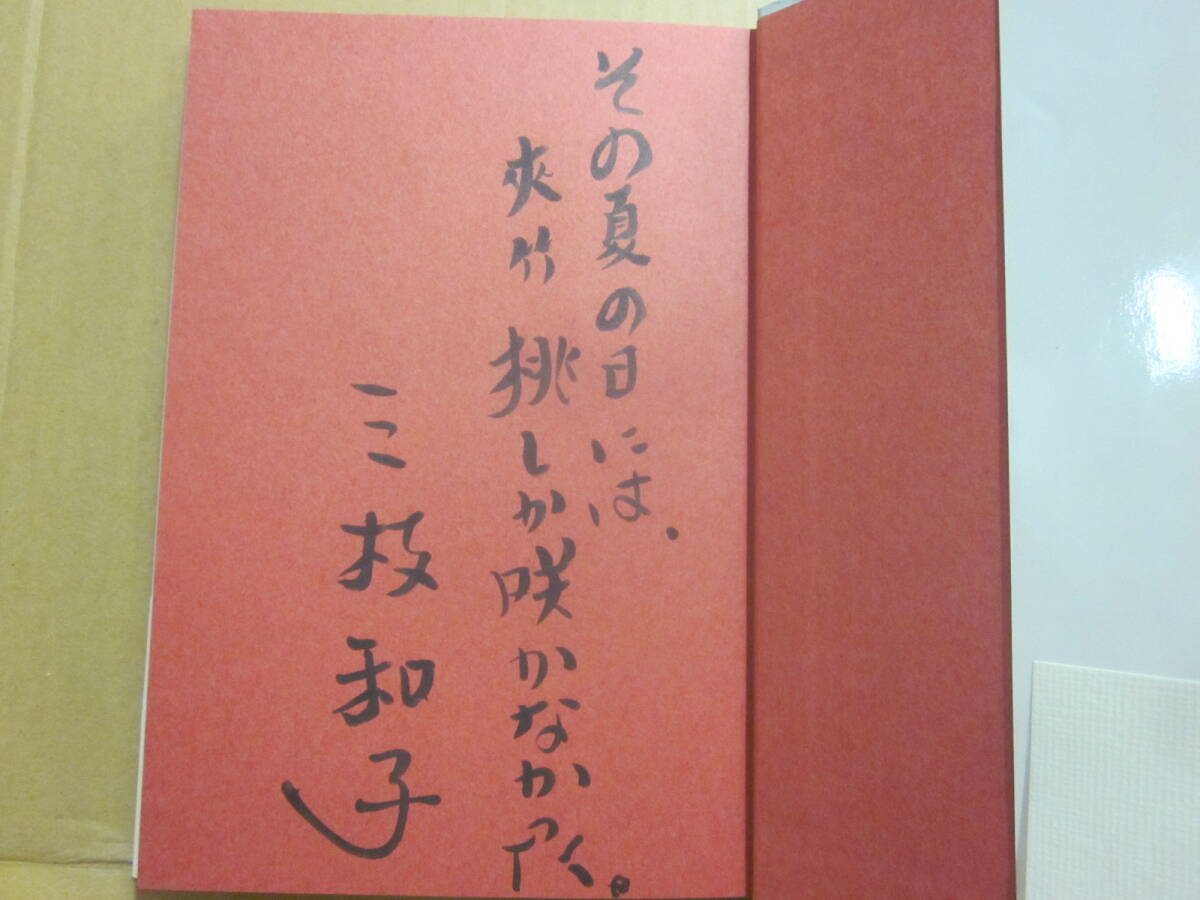 その夏の日には、
夾竹桃しか咲かなかった。
三枝和子